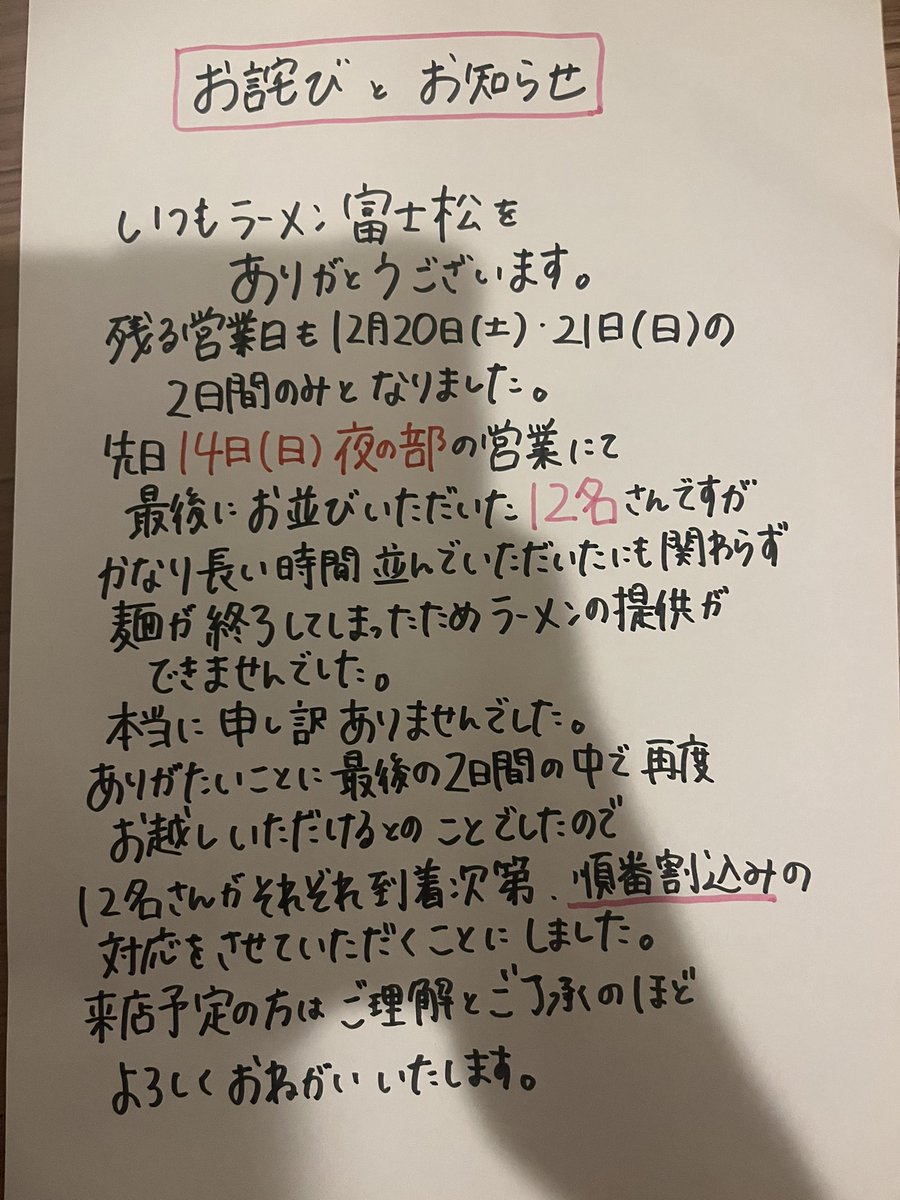 お詫びとお知らせ
いつもラーメン富士松を
ありがとうございます。
残る営業日も12月20日(土)・21日(日)の
2日間のみとなりました。
先日14日(日)夜の部の営業にて
最後にお並びいただいた12名さんですが
かなり長い時間並んでいただいたにも関わらず
麺が終了してしまったためラーメンの提供が
できませんでした。
本当に申し訳ありませんでした。
ありがたいことに最後の2日間の中で再度
お越しいただけるとのことでしたので
12名さんがそれぞれ到着次第、順番割込みの
対応をさせていただくことにしました。
来店予定の方はご理解とご了承のほど
よろしくおねがいいたします。